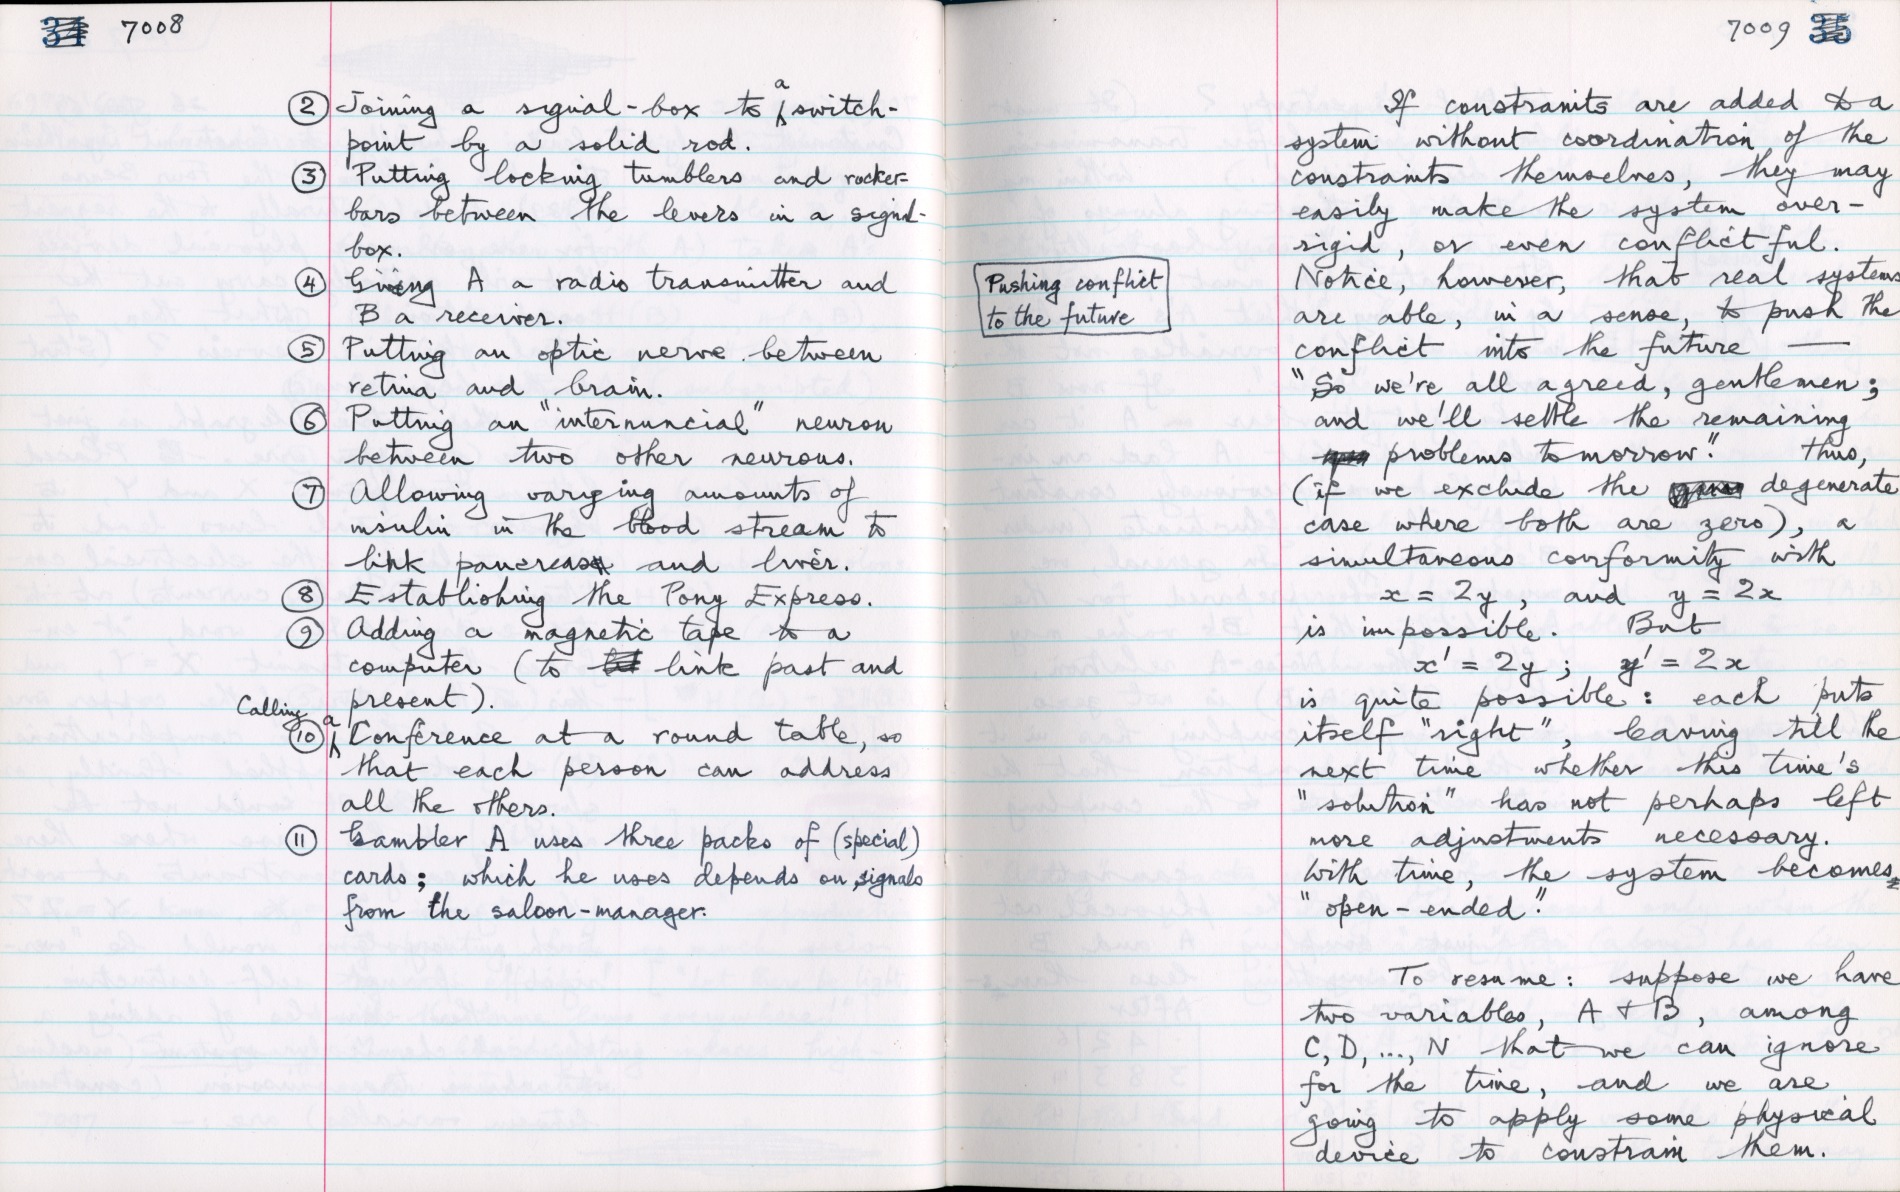 34 7008
② Joining a signal-box to a switch-
point by a solid rod.
③ Putting locking tumblers and rocker-
bars between the levers in a signal-
box.
④ Giving A a radio transmitter and
B a receiver.
⑤ Putting an optic nerve between
retina and brain.
⑥ Putting an "internuncial" neuron
between two other neurons.
⑦ Allowing varying amounts of
insulin in the blood stream to
link pancreas and liver.
⑧ Establishing the Pony Express.
⑨ Adding a magnetic tape to a
computer (to link past and
present).
⑩ Calling a Conference at a round table, so
that each person can address
all the others.
⑪ Gambler A uses three packs of (special)
cards; which he uses depends on signals
from the saloon-manager.
7009 35
If constraints are added to a
system without coordination of the
constraints themselves, they may
easily make the system over-
rigid, or even conflictful.
Pushing conflict
to the future
Notice, however, that real systems
are able, in a sense, to push the
conflict into the future —
"So we're all agreed, gentlemen;
and we'll settle the remaining
problems tomorrow." Thus,
(if we exclude the degenerate
case where both are zero), a
simultaneous conformity with
x = 2y, and y = 2x
is impossible. But
x' = 2y; y' = 2x
is quite possible: each puts
itself "right", leaving till the
next time whether this time's
"solution" has not perhaps left
more adjustments necessary.
With time, the system becomes
"open-ended".
To resume: suppose we have
two variables, A + B, among
C, D, ..., N that we can ignore
for the time, and we are
going to apply some physical
device to constrain them.